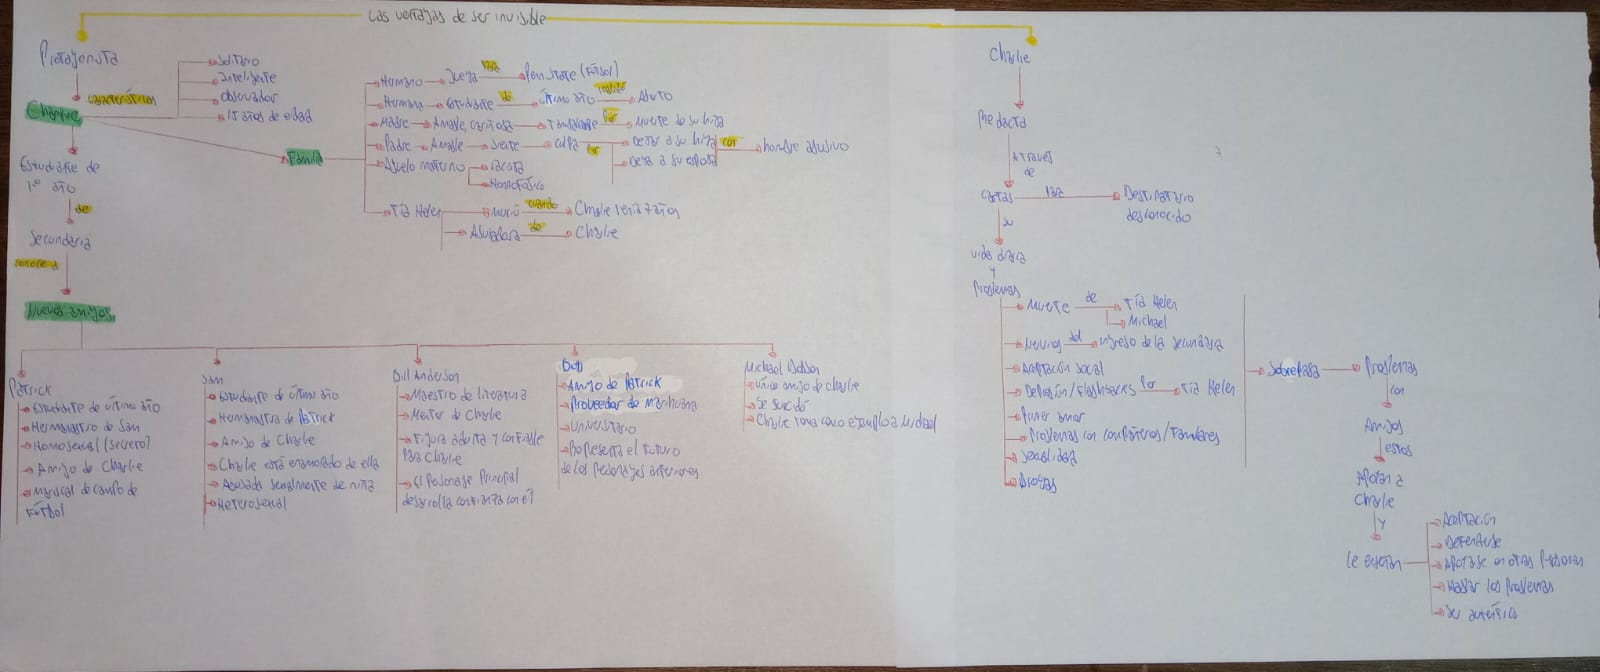 Las ventajas de ser invisible
Protagonista
características
Charlie
Solitario
Inteligente
observador
15 años de edad
Estudiante de
1º año
de
Secundaria
conoce a
Nuevos amigos
Familia
Hermano
Juega
para
Penn State (Fútbol)
Hermana
Estudiante
de
último año
realizó
Aborto
Madre
Amable, cariñosa
por
Muerte de su hija
Padre
Amable
Siente
culpa
por
Dejar a su hija
con
hombre abusivo
Deja a su esposa
Abuelo materno
racista
Homofóbico
Tía Helen
Murió
cuando
Charlie tenía 7 años
Abusadora
de
Charlie
Patrick
Estudiante de último año
Hermanastro de Sam
Homosexual (secreto)
Amigo de Charlie
Mariscal de campo de
Fútbol
Sam
Estudiante de último año
Hermanastra de Patrick
Amiga de Charlie
Charlie está enamorado de ella
Abusada sexualmente de niña
Heterosexual
Bill Anderson
Maestro de literatura
Mentor de Charlie
Figura adulta y confiable
para Charlie
El personaje principal
desarrolla confianza con él
Bob
Amigo de Patrick
Proveedor de marihuana
Universitario
Representa el futuro
de los personajes anteriores
Michael Dobson
único amigo de charlie
Se suicidó
Charlie toma como ejemplo a
Charlie
Redacta
A través
de
cartas
para
Destinatario
desconocido
su
vida diaria
y
Problemas
Muerte
de
Tía Helen
Michael
Nervios
del
ingreso de la secundaria
Aceptación social
Depresión/Flashbacks
por
Tía Helen
Primer amor
Problemas con compañeros/Familiares
Sexualidad
Drogas
Sobrepasa
Problemas
con
Amigos
estos
Apoyan a
Charlie
y
le enseñan
Aceptación
Defenderse
Apoyarse en otras personas
Hablar los problemas
Ser auténtico